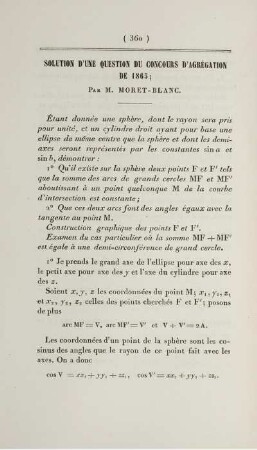 ( 360 )
SOLUTION D'UNE QUESTION DU CONCOURS D'AGRÉGATION
DE 1865;
PAR M. MORET-BLANC.
Étant donnée une sphère, dont le rayon sera pris
pour unité, et un cylindre droit ayant pour base une
ellipse de même centre que la sphère et dont les demi-
axes seront représentés par les constantes sin a et
sin b, démontrer :
1° Qu'il existe sur la sphère deux points F et F' tels
que la somme des arcs de grands cercles MF et MF'
aboutissant à un point quelconque M de la courbe
d'intersection est constante;
2° Que ces deux arcs font des angles égaux avec la
tangente au point M.
Construction graphique des points F et F'.
Examen du cas particulier où la somme MF + MF'
est égale à une demi-circonférence de grand cercle.
1° Je prends le grand axe de l'ellipse pour axe des x,
le petit axe pour axe des y et l'axe du cylindre pour axe
des z.
Soient x, y, z les coordonnées du point M; x₁, y₁, z₁
et x₂, y₂, z₂ celles des points cherchés F et F'; posons
de plus
arc MF = V, arc MF' = V' et V + V' = 2A.
Les coordonnées d'un point de la sphère sont les co-
sinus des angles que le rayon de ce point fait avec les
axes. On a donc
cos V = xx₁ + yy₁ + zz₁, cos V' = xx₂ + yy₂ + zz₂.